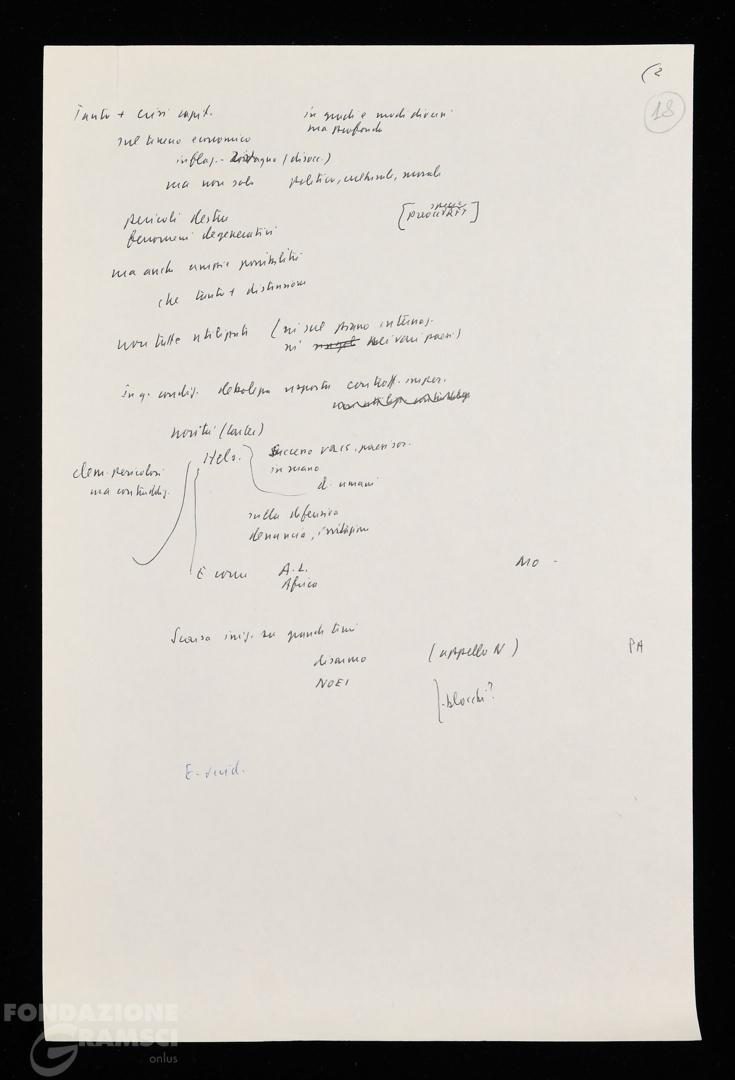 (2
18
Tanto + crisi capit. in gradi e modi diversi
ma profonda
sul terreno economico
inflaz. - (disocc.)
ma non solo politica, culturale, morale
pericoli destra
fenomeni degenerativi
ma anche ampie possibilità
che tanto + distensione
non tutte utilizzate (né sul piano internaz.
né nei vari paesi)
in q. condiz. debolezza risposta controff. imper.
novità (Carter)
Hels. paesi soc.
elem. pericolosi in mano
ma contraddiz. d. umani
sulla defensiva
denuncia, irritazione
E come A.L. MO -
Africa
Scarsa iniz. su grandi temi
disarmo (appello N) PA
NOEI
- blocchi?
FONDAZIONE
GRAMSCI
onlus